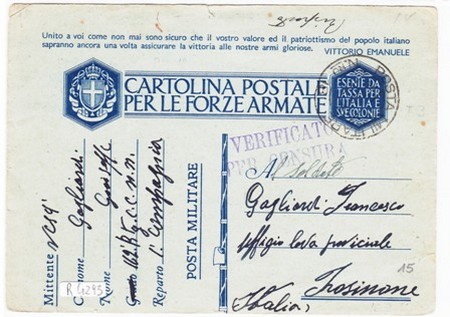 Unito a voi come non mai sono sicuro che il vostro valore ed il patriottismo del popolo italiano
sapranno ancora una volta assicurare la vittoria alle nostre armi gloriose. VITTORIO EMANUELE
CARTOLINA POSTALE
PER LE FORZE ARMATE
ESENTE DA
TASSA PER
L'ITALIA E
SVE COLONIE
POSTA MILITARE
VERIFICATO
PER CENSURA
Al Soldato
Gagliardi Francesco
Ufficio leva provinciale
Frosinone
(Italia)
15
POSTA MILITARE
Mittente
Cognome Gagliardi
Nome Giuseppe
Reparto 1ª Compagnia
R 4295